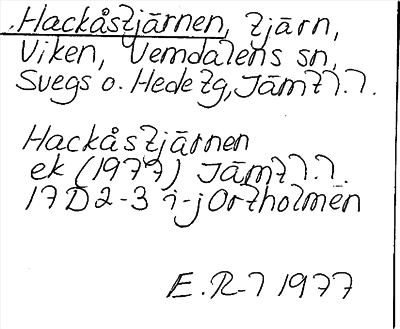 Hackåstjärnen, tjärn,
Viken, Vemdalens sn,
Svegs o. Hede tg, Jämtl.l.
Hackåstjärnen
ek (1977) Jämtl.l.
17D2-3 i-j Ortholmen
E.R-l 1977